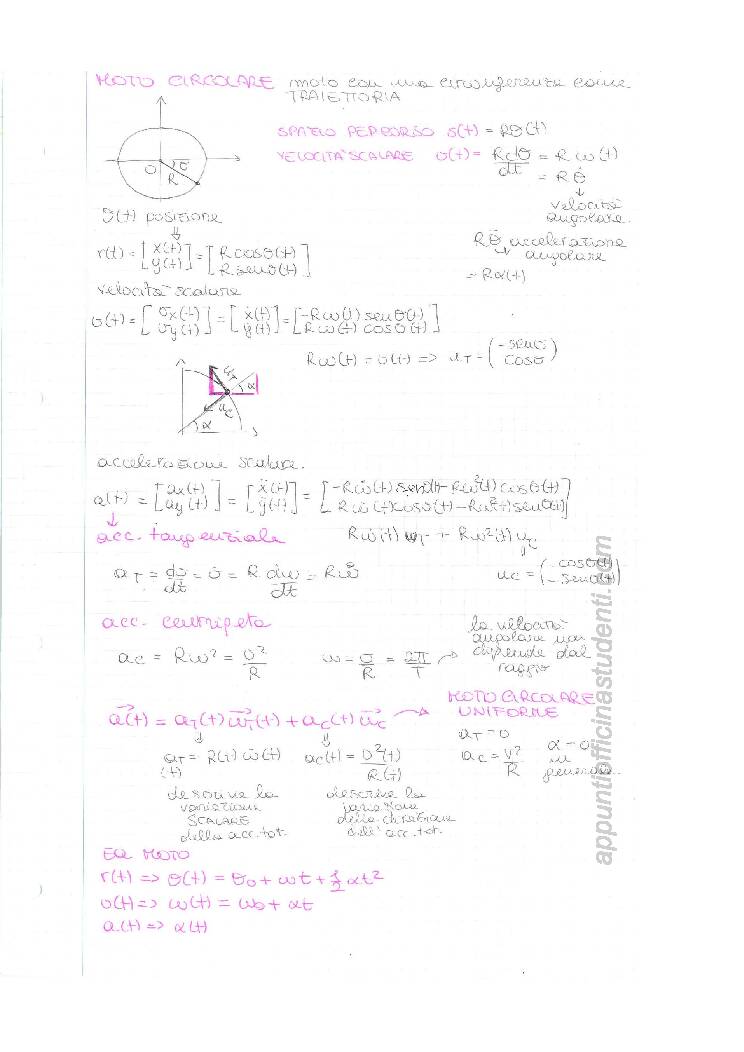 MOTO CIRCOLARE moto con una circonferenza come
TRAIETTORIA
SPAZIO PERCORSO s(t) = Rθ(t)
VELOCITÀ SCALARE v(t) = Rdθ/dt = R ω(t)
= R θ̇
O R θ
velocità
angolare
θ(t) posizione
Rθ̈ accelerazione
angolare
= Rα(t)
r(t) = [x(t) y(t)] = [R cosθ(t) R senθ(t)]
velocità scalare
v(t) = [vx(t) vy(t)] = [ẋ(t) ẏ(t)] = [-Rω(t) senθ(t) Rω(t) cosθ(t)]
Rω(t) = v(t) => uT = (-senθ cosθ)
uT α
uc
α
accelerazione scalare.
a(t) = [ax(t) ay(t)] = [ẍ(t) ÿ(t)] = [-Rω̇(t) senθ(t) - Rω²(t) cosθ(t) Rω̇(t) cosθ(t) - Rω²(t) senθ(t)]
acc. tangenziale
Rω̇(t) uT + Rω²(t) uc
aT = dv/dt = v̇ = R dω/dt = Rω̇
uc = (-cosθ(t) -senθ(t))
acc. centripeta
la velocità
angolare non
dipende dal
raggio
ac = Rω² = v²/R
ω = v/R = 2π/T
MOTO CIRCOLARE
UNIFORME
a(t) = aT(t) uT(t) + ac(t) uc
aT = 0
ac = v²/R
α = 0
in
generale.
aT(t) = R(t) ω̇(t)
ac(t) = v²(t)/R(t)
descrive la
variazione
SCALARE
della acc. tot.
descrive la
della direzione
dell'acc. tot.
EQ. MOTO
r(t) => θ(t) = θ0 + ωt + 1/2 αt²
v(t) => ω(t) = ω0 + αt
a(t) => α(t)
appuntiofficinastudenti.com